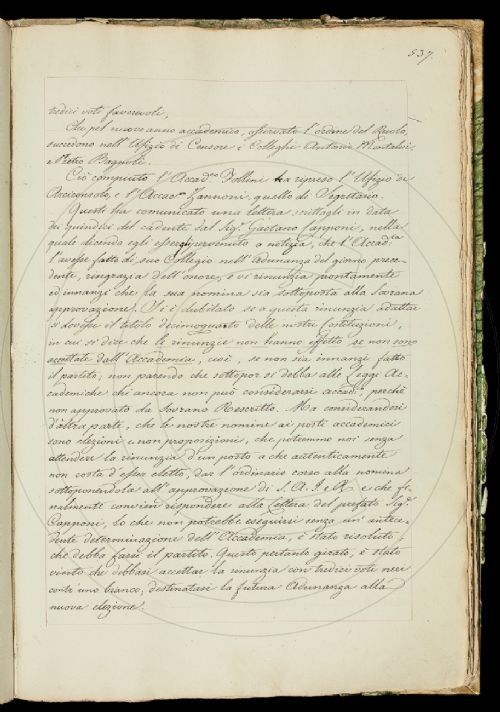 537.
tredici voti favorevoli.
Che pel nuovo anno accademico, osservato l'ordine del Ruolo,
succedono nell'Uffizio di Censore i Colleghi Antonio Montalvi,
e Pietro Bagnoli.
Ciò compiuto l'Accad.co Follini ha ripreso l'Ufizio di
Arciconsolo, e l'Accac.co Zannoni, quello di Segretario.
Questi ha comunicato una lettera scrittagli in data
de' quindici del cadente dal Sig.r Gaetano Capponi, nella
quale dicendo egli essergli pervenuto a notizia, che l'Accad.ia
l'avesse fatto di suo Collegio nell'Adunanza del giorno prece-
dente, ringrazia dell'onore, e vi rinunzia prontamente
ed innanzi che la sua nomina sia sottoposta alla Sovrana
approvazione. Si è dubitato se a questa rinunzia adattar
si dovesse il titolo decimoquarto delle nostre Costituzioni,
in cui si dice che le rinunzie non hanno effetto se non sono
accettate dall'Accademia, cioè, se non sia innanzi fatto
il partito, non parendo che sottopor si debba alle Leggi Ac-
cademiche chi ancora non può considerarsi accad.co perchè
non approvato da Sovrano Rescritto. Ma considerandosi
d'altra parte, che le nostre nomine ai posti accademici
sono elezioni e non proposizioni, che potremmo noi senza
attendere la rinunzia d'un posto a chi autenticamente
non costa d'esser eletto, dar l'ordinario corso alla nomina
sottoponendola all'approvazione di S. A. I. e R. e che fi-
nalmente convien rispondere alla Lettera del prefato Sig.r
Capponi, lo che non potrebbe eseguirsi senza un antece-
dente determinazione dell'Accademia, è stato risoluto,
che debba farsi il partito. Questo pertanto girato, è stato
vinto che debbasi accettar la rinunzia con tredici voti neri
contr'uno bianco, destinatasi la futura Adunanza alla
nuova elezione.